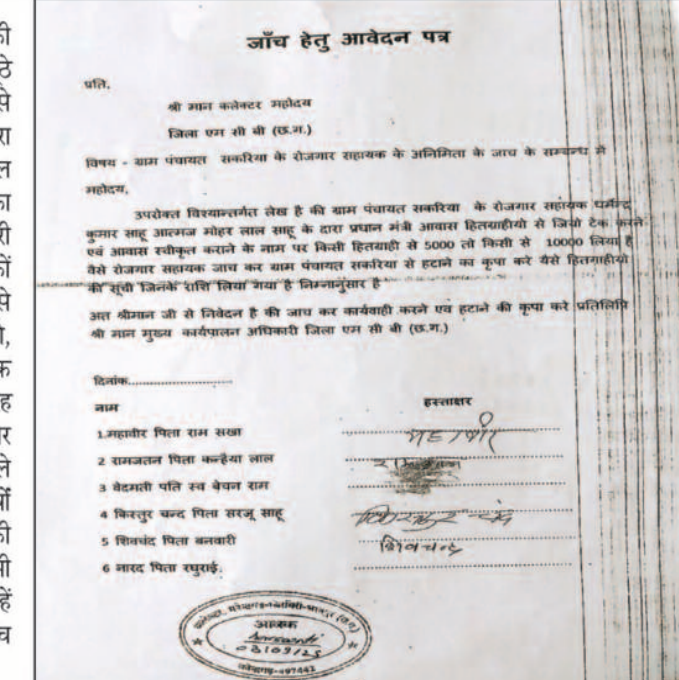 की
ठे
से
रा
ल
का
री
कों
से
ो,
क
ह
ार
ले
यों
की
भी
हें
च
जाँच हेतु आवेदन पत्र
प्रति,
श्री मान कलेक्टर महोदय
जिला एम सी बी (छ.ग.)
विषय - ग्राम पंचायत सकरिया के रोजगार सहायक के अनिमिता के जाच के सम्बन्ध मे
महोदय,
उपरोक्त विश्यान्तर्गत लेख है की ग्राम पंचायत सकरिया के रोजगार सहायक धर्मेन्द्र
कुमार साहू आत्मज मोहर लाल साहू के दारा प्रधान मंत्री आवास हितग्राहीयो से जियो टेक करने
एवं आवास स्वीकृत कराने के नाम पर किसी हितग्राही से 5000 तो किसी से 10000 लिया है
वैसे रोजगार सहायक जाच कर ग्राम पंचायत सकरिया से हटाने का कृपा करे यैसे हितग्राहीयो
की सूची जिनके राशि लिया गया है निम्नानुसार है
अत श्रीमान जी से निवेदन है की जाच कर कार्यवाही करने एव हटाने की कृपा करे प्रतिलिपि
श्री मान मुख्य कार्यपालन अधिकारी जिला एम सी बी (छ.ग.)
दिनांक........................
नाम हस्ताक्षर
1.महावीर पिता राम सखा महावीर
2 रामजतन पिता कन्हैया लाल
3 वेदमती पति स्व बेचन राम
4 किस्तुर चन्द पिता सरजू साहू
5 शिवचंद पिता बनवारी शिवचन्द
6 नारद पिता रघुराई.
आवक
03/09/25